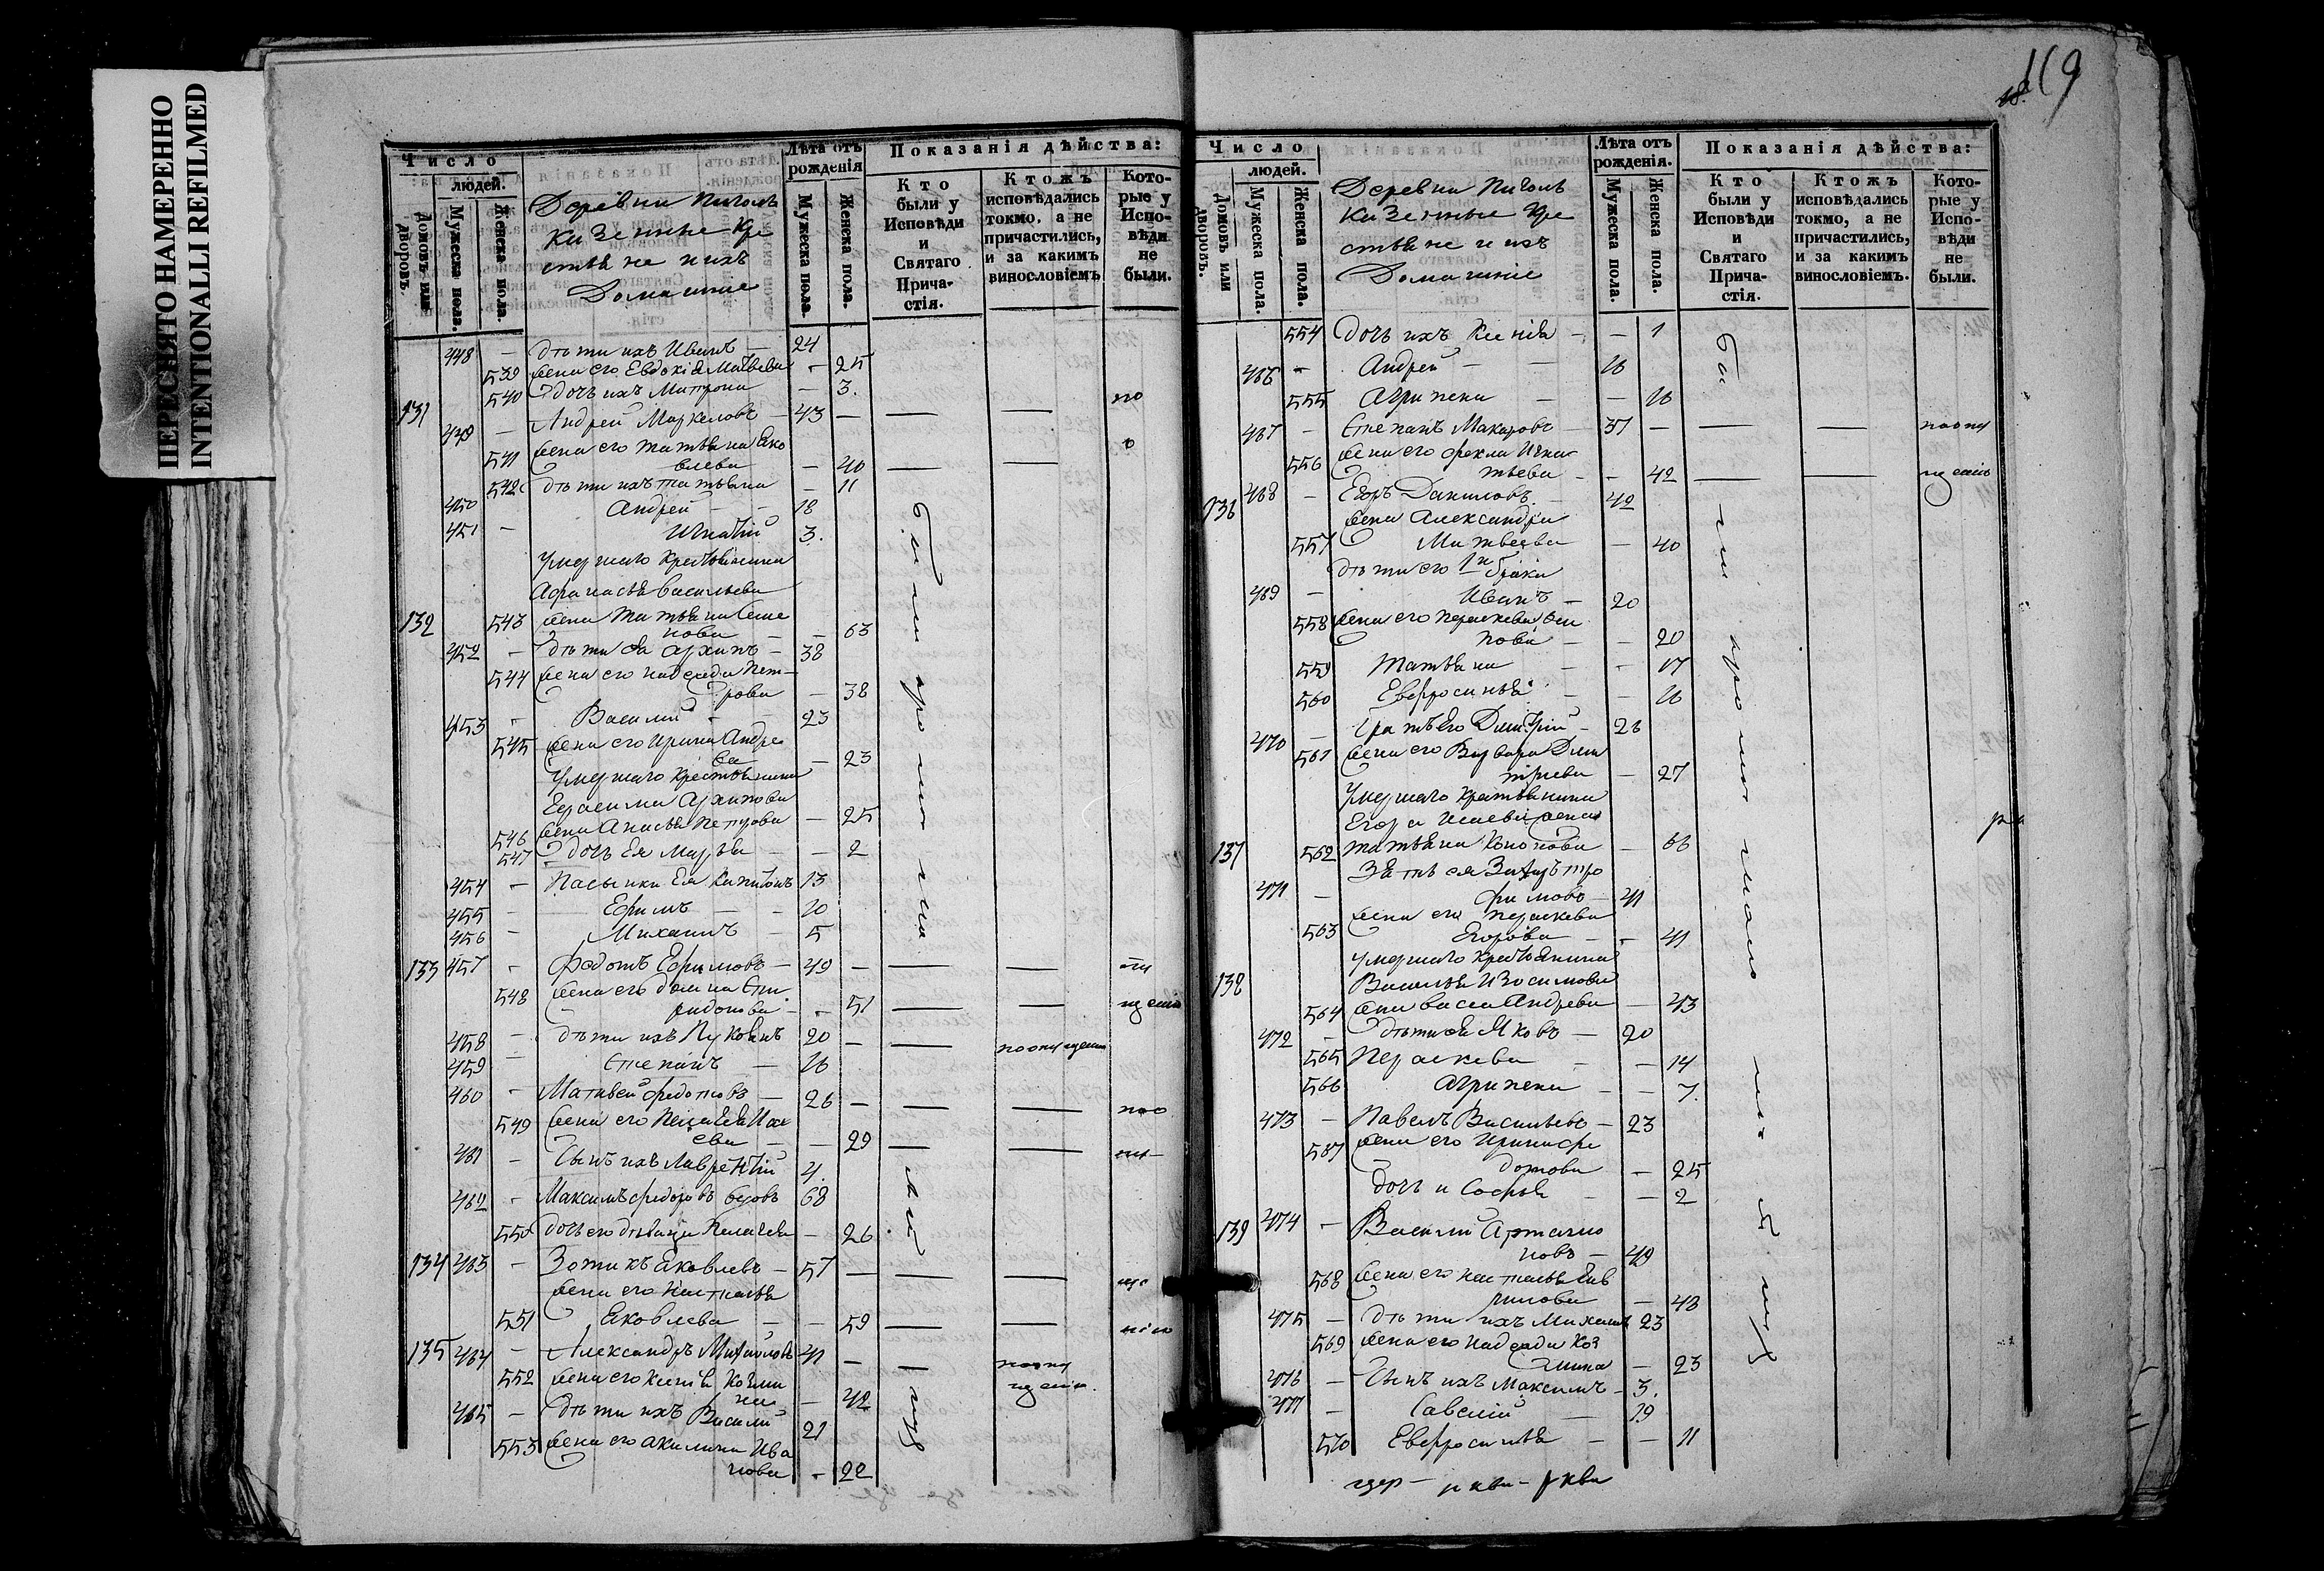 ПЕРЕСНЯТО НАМЕРЕННО
INTENTIONALLI REFILMED
119
18.
Число
людей.
Домовъ или дворовъ.
Мужеска пола.
Женска пола.
Деревни
казенные кре
стьяне и ихъ
Домашніе
Лѣта отъ рожденія
Мужеска пола.
Женска пола.
Показанія дѣйства:
Кто были у Исповѣди и Святаго Прича-стія.
Ктожъ исповѣдались токмо, а не причастились, и за какимъ винословіемъ
Кото-рые у Испо-вѣди не были.
448 — дѣти ихъ Иванъ — 24
539 жена его Евдокія Матвѣева — 25
540 дочь ихъ Матрона — 3.
131 449 — Андрей Маркеловъ — 43 — — — по
541 жена его Татьяна Яко
влева — 40 — —
542 дѣти ихъ Татьяна — 11
450 Андрей — 18
451 — Игнатій 3.
Умершаго крестьянина
Афанасья Васильева
132 543 жена Татьяна Семе
нова — 63
452 — дѣти ея Архипъ — 38
544 жена его Надежда Пет-
рова — 38
453 — Василий — 23
545 жена его Ирина Андре
ва — 23
Умершаго крестьянина
Герасима Архипова
546 жена Анисья Петрова — 25
547 дочь ея Марья — 2
454 — Пасынки ея Капитонъ 13
455 — Ефимъ — 10
456 — Михаилъ — 5
133 457 — Федотъ Ефимовъ — 49 — — —
548 жена его Домна Спи
ридонова — 51 — —
458 — дѣти ихъ Лукоянъ 20 — — поопущенію
459 — Степанъ — 16
460 — Матвей Федотовъ — 26 — — — поо
549 жена его Пелагея Иса
ева — 29 — —
461 — Сынъ ихъ Лаврентій 4.
462 — Максимъ Федоровъ 68
550 дочь его дѣвица Пелагея — 26
134 463 — Зотикъ Яковлевъ — 57 — — —
жена его Наталья
551 Яковлева — 59 — —
135 464 — Александръ Михайловъ 41 — — поопу
552 жена его Ксенія Козми
на — 42 щенію.
465 — Дѣти ихъ Василий 21
553 жена его Акилина Ива
нова — 22
были
кромя
Число
людей.
Домовъ или дворовъ.
Мужеска пола.
Женска пола.
Деревни
казенные кре
стьяне и ихъ
Домашніе
Лѣта отъ рожденія.
Мужеска пола.
Женска пола.
Показанія дѣйства:
Кто были у Исповѣди и Святаго Прича-стія.
Ктожъ исповѣдались токмо, а не причастились, и за какимъ винословіемъ.
Кото-рые у Испо-вѣди не были.
554 дочь ихъ Ксенія — — 1
466 — Андрей — 16
555 Агрипена — — 16
467 — Степанъ Макаровъ — 37 — — — поопу
556 жена его Фекла Игна
тьева — — 42 — — щенію
136 468 — Егоръ Даниловъ — 42
жена Александра
557 Матвеева — 40
дѣти его 1го брака
469 — Иванъ — 20
558 жена его Параскева
пова — — 20
559 Татьяна — — 17
560 Евфросинья — — 16
470 — братъ его Димитрій — 26
561 жена его Варвара Дими
тріева — 27
Умершаго крестьянина
Егора Исаева жена
137 562 Татьяна Кононова — 66
Зять ея Захаръ Тро
471 — фимовъ — 41
жена его Параскева
563 Егорова — — 41
умершаго крестьянина
138 Василья Изосимова
564 жена Васса Андреева — 43
472 — дѣти ея Яковъ — 20
565 Параскева — — 14
566 Агрипена — — 7.
473 — Павелъ Васильевъ — 23
567 жена его Ирина Фе
дотова — 25
дочь и Софья — — 2
139 474 — Василий Артамо
новъ — 49
568 жена его Наталья Гав
рилова — 48
475 — дѣти ихъ Михаилъ 23
569 жена его Надежда Коз
мина — 23
476 — Сынъ ихъ Максимъ — 3.
477 — Савелій — 19
570 Евфросинья — — 11